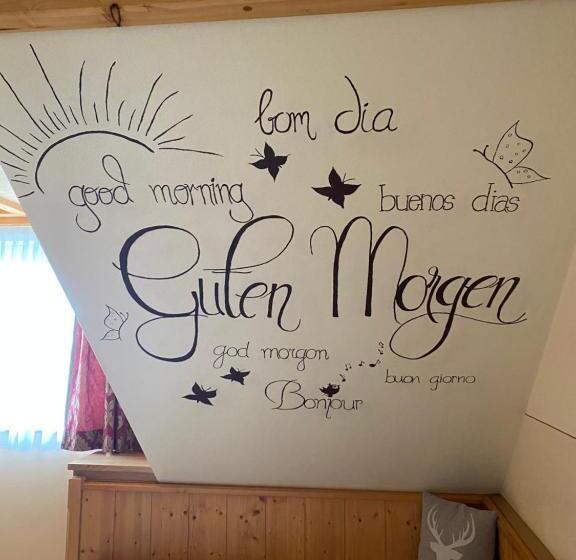 bom dia
good morning
buenos dias
Guten Morgen
god morgon
buon giorno
Bonjour